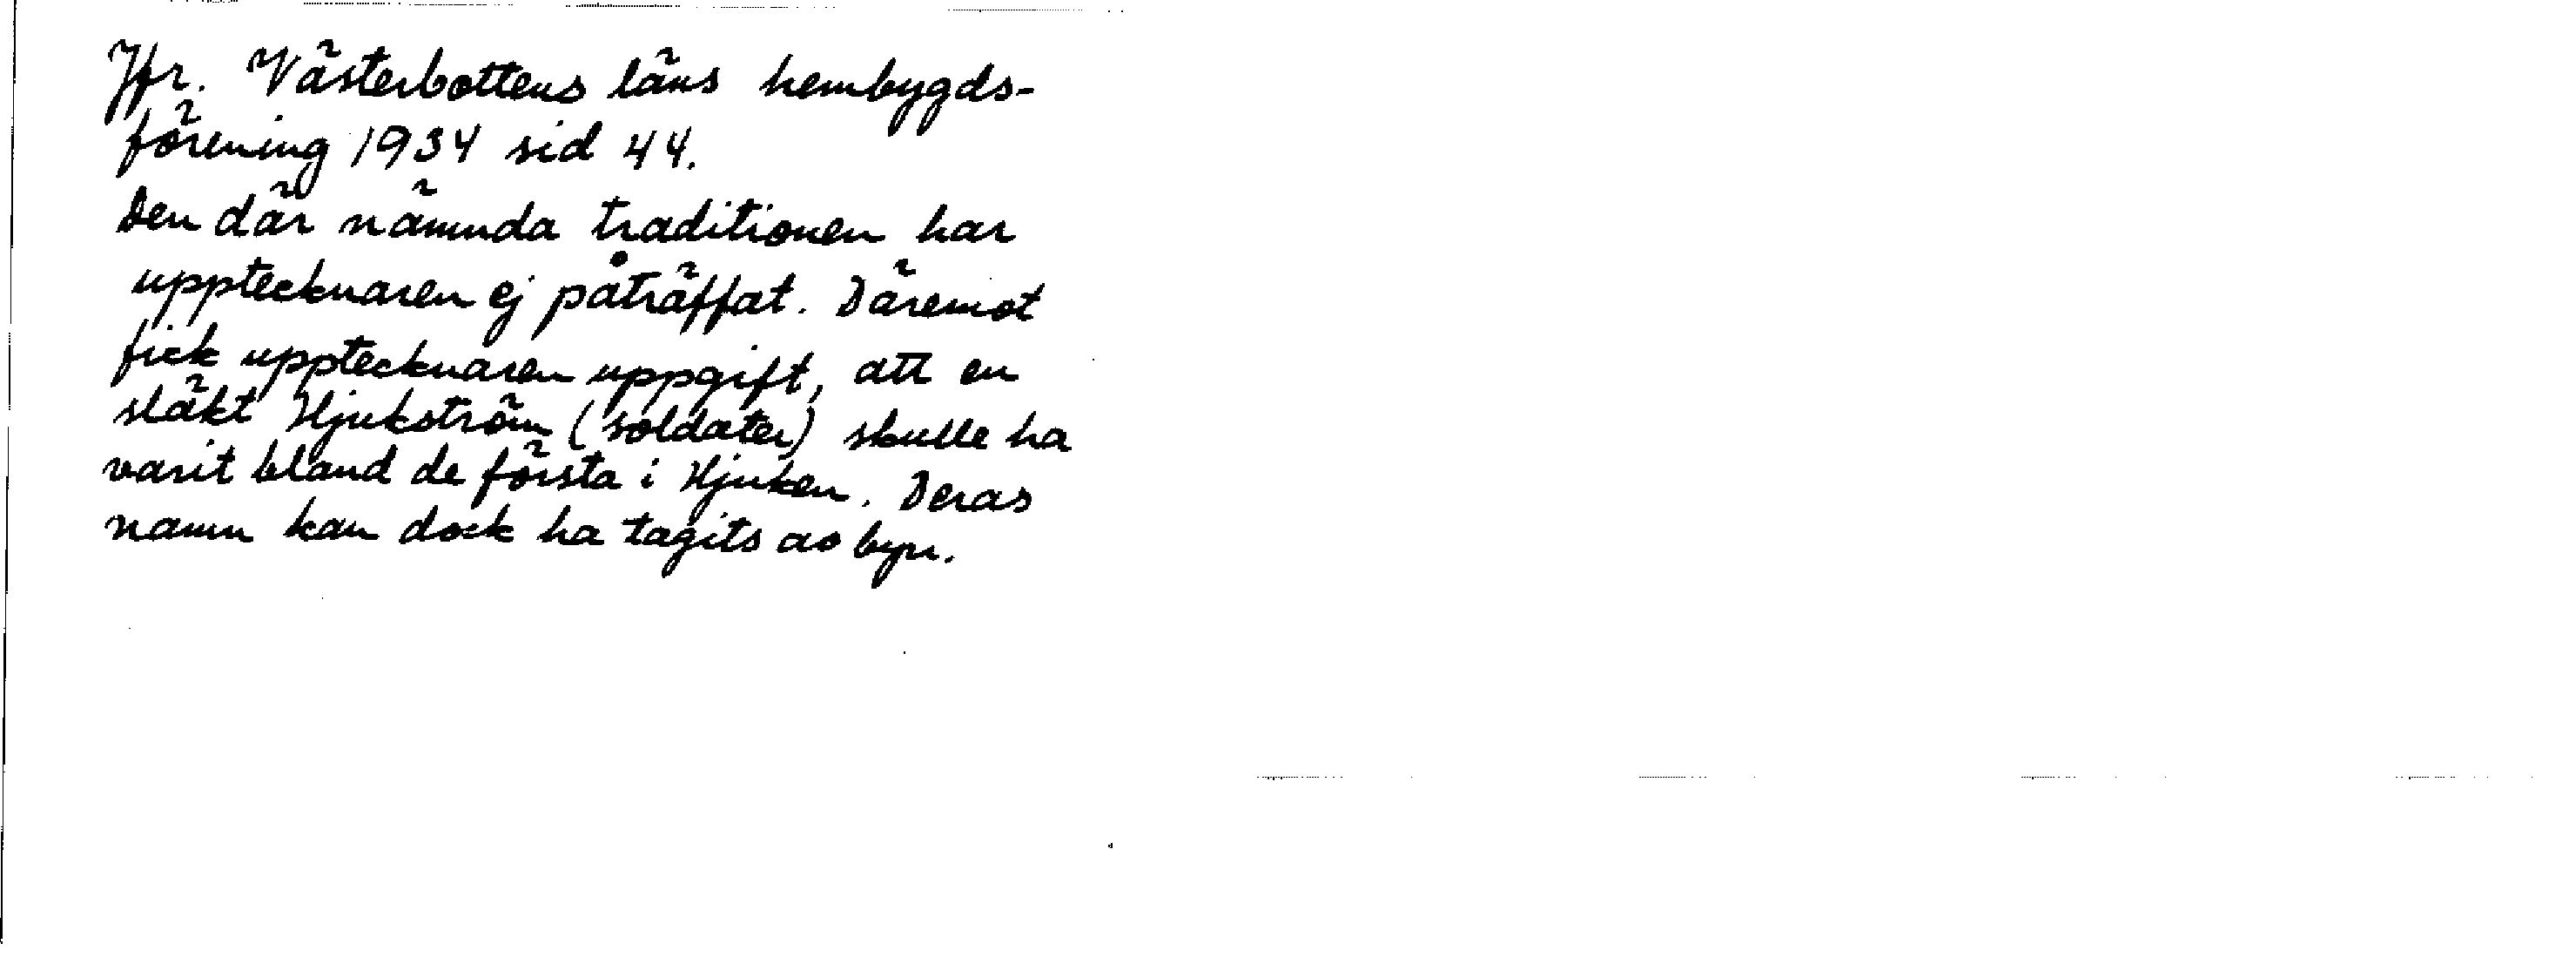 Jfr. Västerbottens läns hembygds-
förening 1934 sid 44.
Den där nämnda traditionen har
upptecknaren ej påträffat. Däremot
fick upptecknaren uppgift, att en
släkt Hjukström (soldater) skulle ha
varit bland de första i Hjuken. Deras
namn kan dock ha tagits av byn.